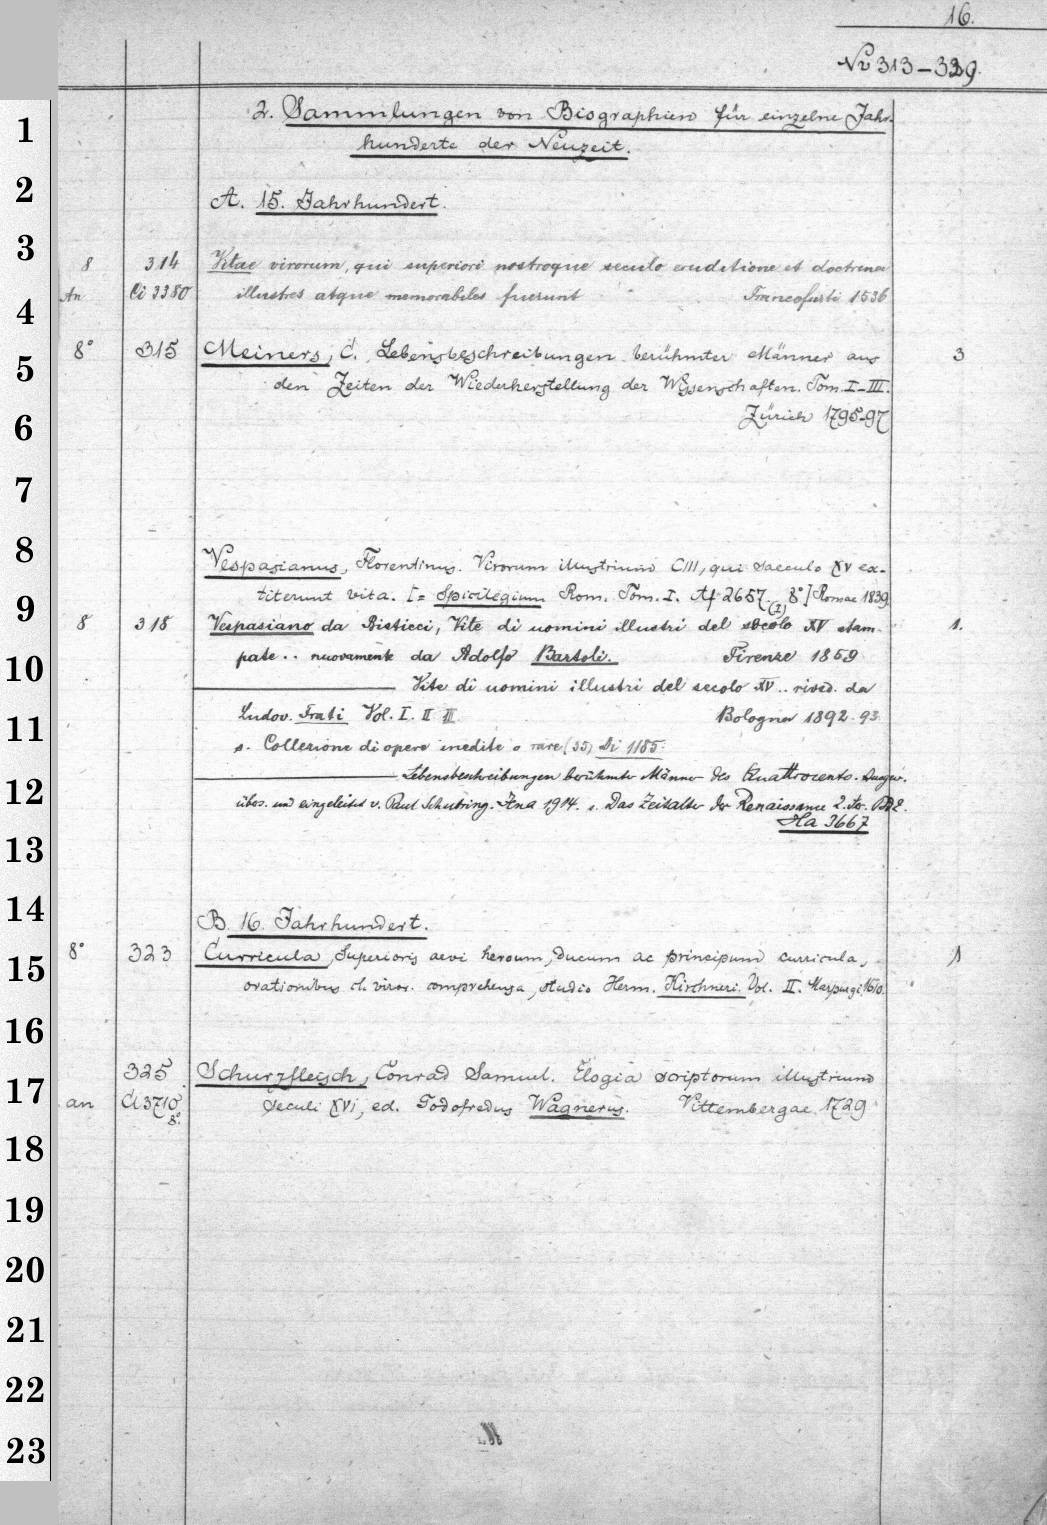 16.
No 313-329.
1
2. Sammlungen von Biographien für einzelne Jahr-
hunderte der Neuzeit.
2
A. 15. Jahrhundert.
3
8 314 Vitae virorum, qui superiori nostroque seculo eruditione et doctrina
An Ci 3380 illustres atque memorabiles fuerunt Francofurti 1536
4
8° 315 Meiners, C. Lebensbeschreibungen berühmter Männer aus 3
5
den Zeiten der Wiederherstellung der Wissenschaften. Tom. I-III.
Zürich 1795-97
6
7
8
Vespasianus, Florentinus. Virorum illustrium CIII, qui saeculo XV ex-
titerunt vita. [= Spicilegium Rom. Tom. I. Af 2657 8°] Romae 1839
(1)
9
8 318 Vespasiano da Bisticci, Vite di uomini illustri del secolo XV stam- 1.
pate .. nuovamente da Adolfo Bartoli. Firenze 1859
10
Vite di uomini illustri del secolo XV .. rived. da
Ludov. Frati Vol. I. II III. Bologna 1892-93
11
s. Collezione di opere inedite o rare (35) Di 1185.
Lebensbeschreibungen berühmter Männer des Quattrocento. Ausgew.
12
übers. und eingeleitet v. Paul Schubring. Jena 1914. s. Das Zeitalter der Renaissance 2. Ser. Bd 2.
Ha 3667
13
14
B. 16. Jahrhundert.
8° 323 Curricula, Superioris aevi heroum, ducum ac principum curricula, 1
15
orationibus cl. viror. comprehensa, studio Herm. Kirchneri. Vol. II. Marpurgi 1610.
16
325 Schurzfleisch, Conrad Samuel. Elogia scriptorum illustrium
17
an Ci 3710 seculi XVI, ed. Godofredus Wagnerus. Vittembergae 1729
8°.
18
19
20
21
22
23